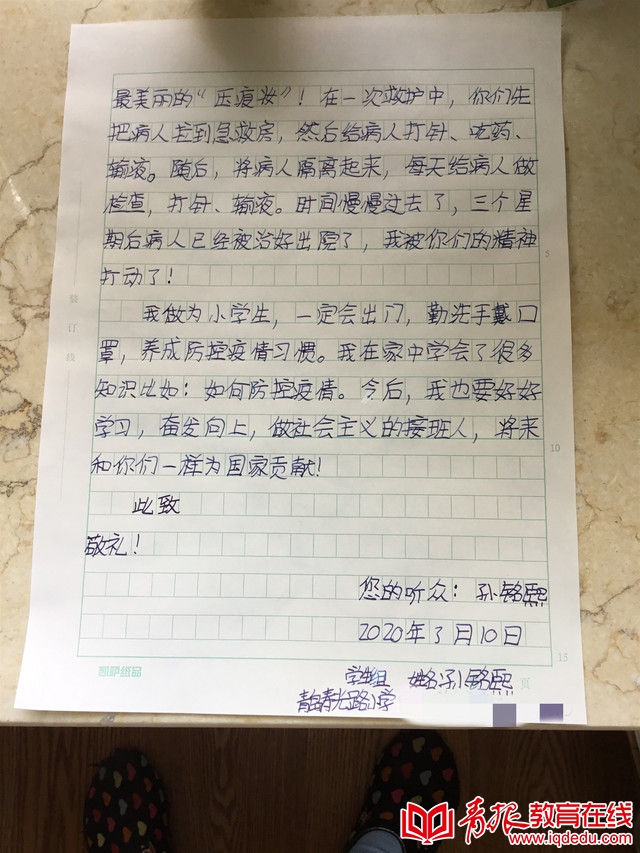 最美丽的“压痕妆”！在一次救护中，你们先
把病人拉到急救房，然后给病人打针、吃药、
输液。随后，将病人隔离起来，每天给病人做
检查，打针、输液。时间慢慢过去了，三个星
期后病人已经被治好出院了，我被你们的精神
打动了！
我做为小学生，一定会出门，勤洗手戴口
罩，养成防控疫情习惯。我在家中学会了很多
知识比如：如何防控疫情。今后，我也要好好
学习，奋发向上，做社会主义的接班人，将来
和你们一样为国家贡献！
此致
敬礼！
您的听众：孙铭熙
2020年3月10日
学生组 姓名：孙铭熙
青岛寿光路小学
装订线
5
10
15
凯萨纸品
页
青报教育在线
www.iqdedu.com